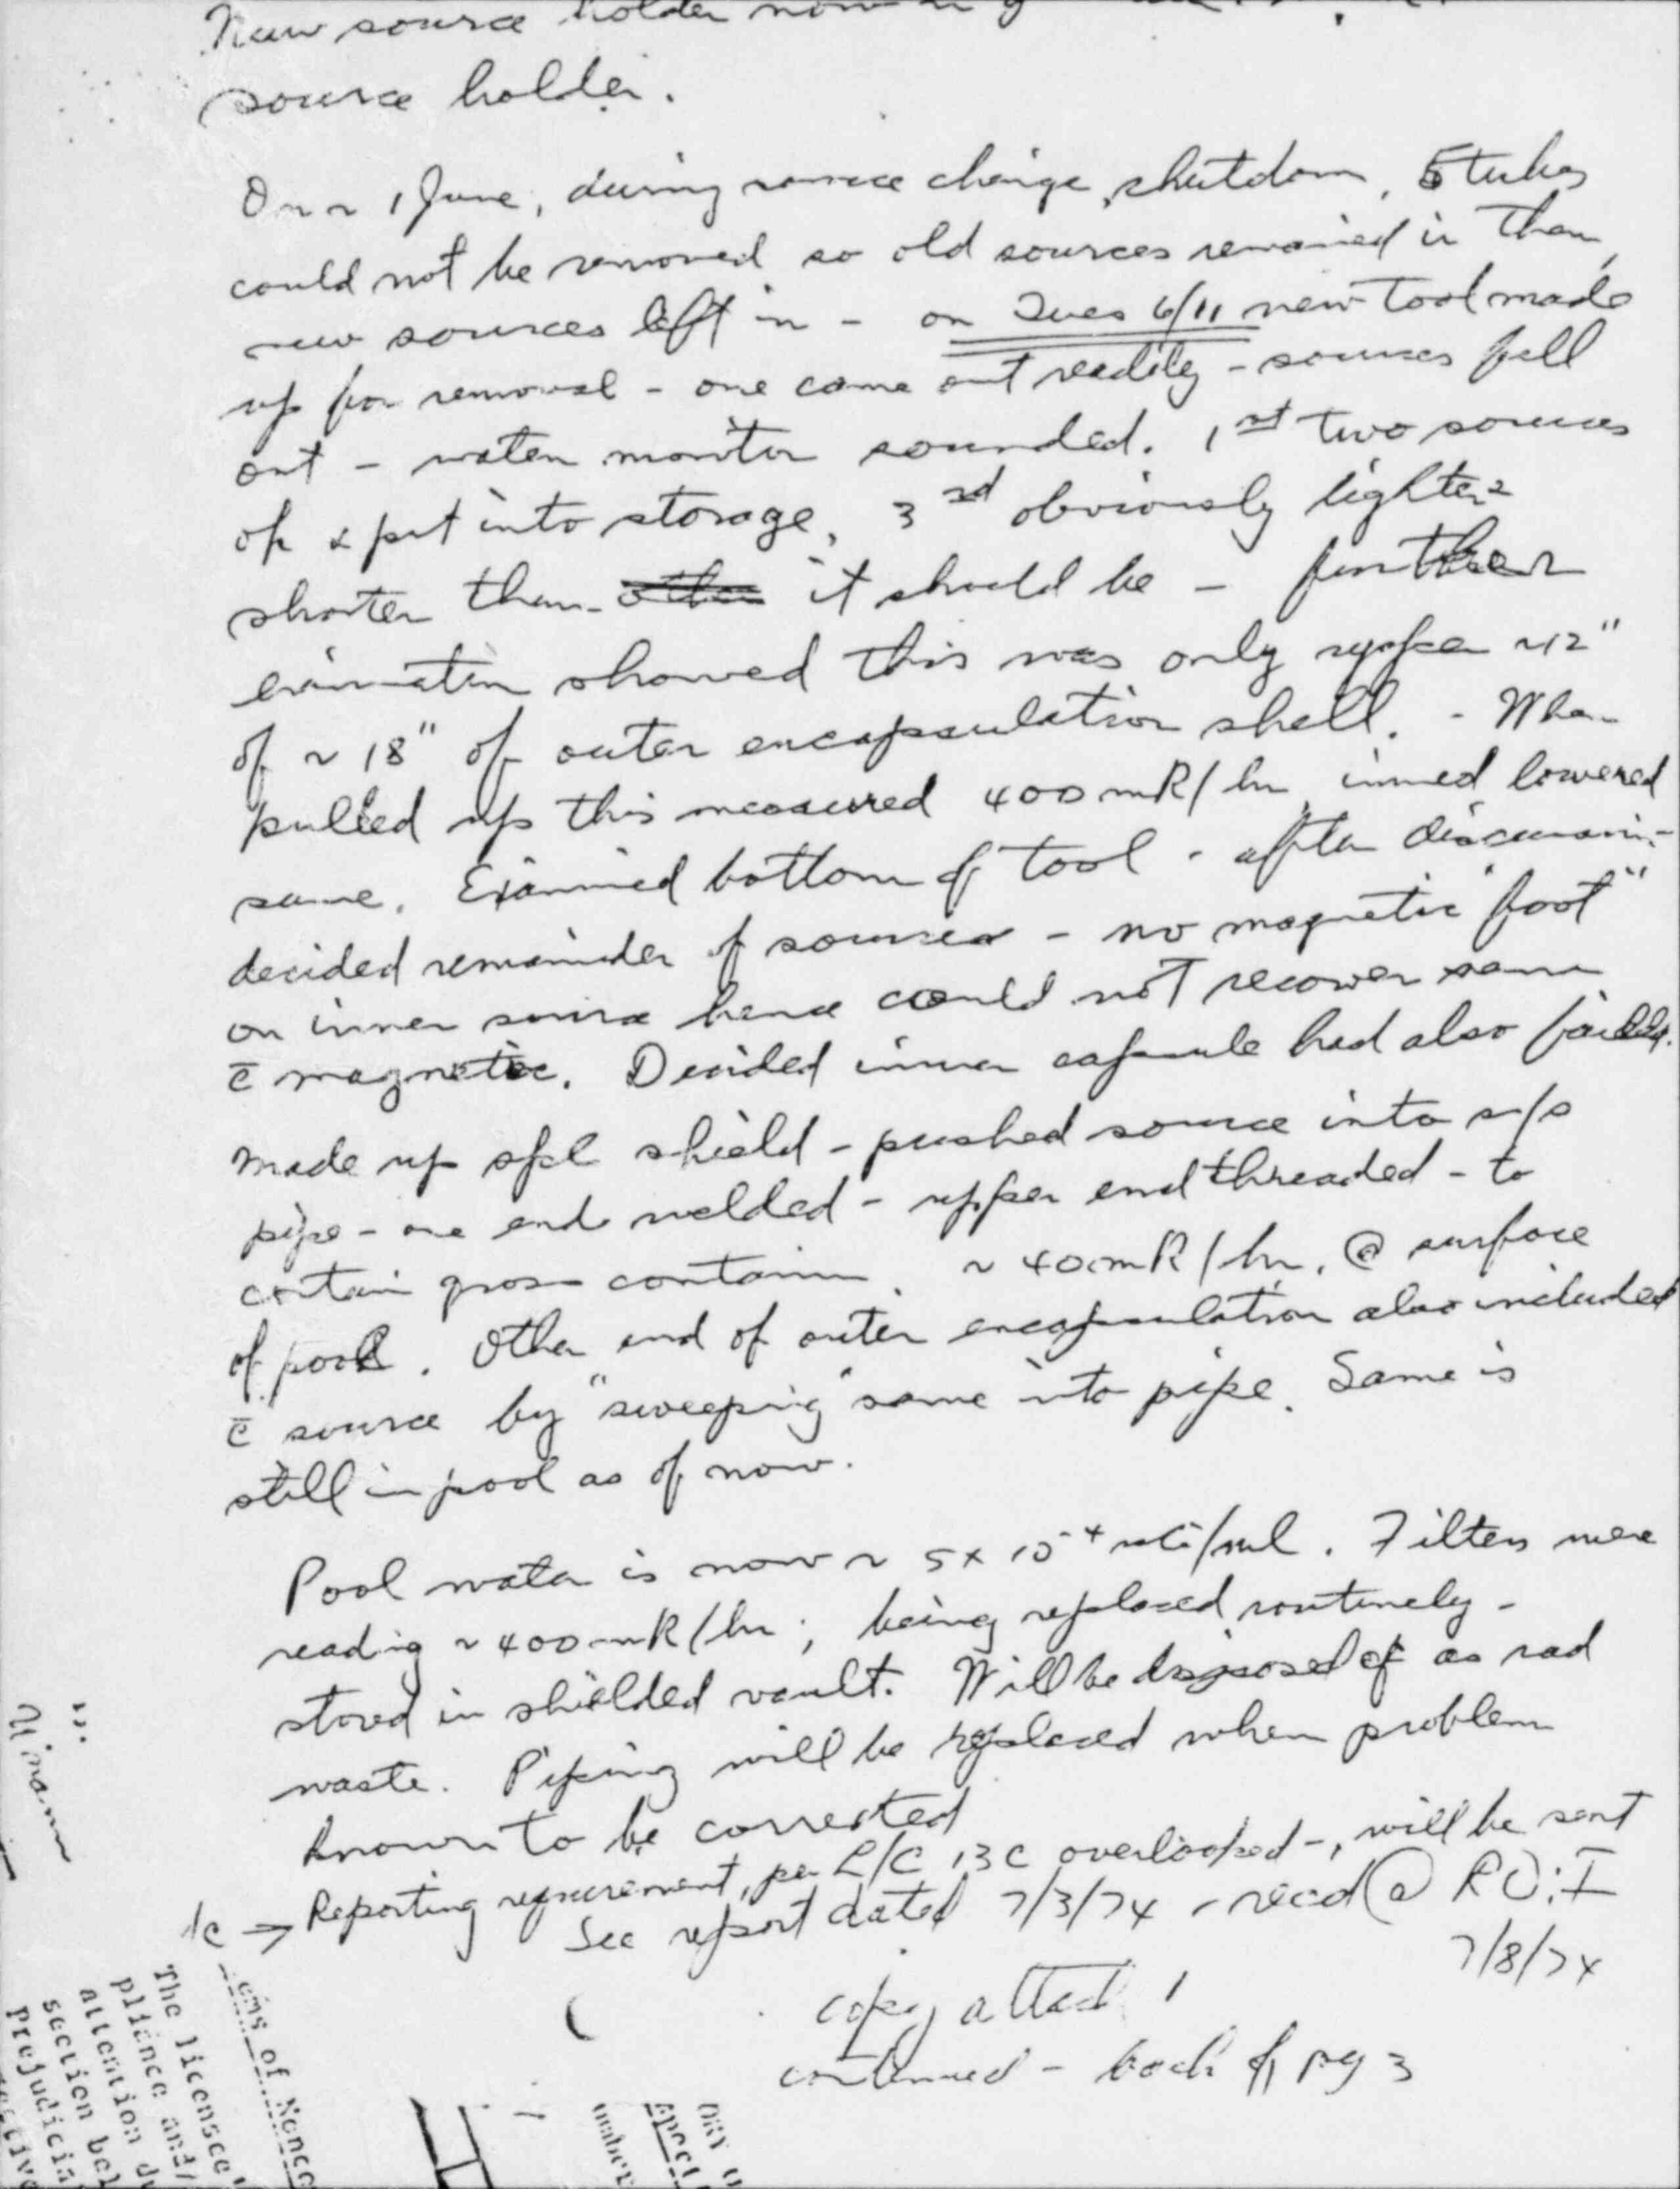 New source holder now
source holder.
On ~ 1 June, during source change, shutdown, 5 tubes
could not be removed so old sources remained in them,
new sources left in - on Tues 6/11 new tool made
up for removal - one came out readily - sources fell
out - water monitor sounded. 1st two sources
ok & put into storage, 3rd obviously lighter &
shorter than it should be - further
examination showed this was only upper ~12"
of ~ 18" of outer encapsulation shell. - When
pulled up this measured 400 mR/hr, immed lowered
same. Examined bottom of tool - after discussion -
decided remainder of sources - no magnetic "foot"
on inner source hence could not recover same
c̄ magnetic. Decided inner capsule had also failed.
Made up spcl shield - pushed source into s/s
pipe - one end welded - upper end threaded - to
contain gross contamin. ~ 40 mR/hr. @ surface
of pool. Other end of outer encapsulation also included
c̄ source by "sweeping" same into pipe. Same is
still in pool as of now.
Pool water is now ~ 5 x 10⁻⁴ uCi/ml. Filters were
reading ~ 400 mR/hr; being replaced routinely -
stored in shielded vault. Will be disposed of as rad
waste. Piping will be replaced when problem
known to be corrected
1c → Reporting requirement, per L/C 13C overlooked -, will be sent
See report dated 7/3/74 - recd @ RO:I
7/8/74
copy attach
continued - back of pg 3
ems of Nonco
The licensee'
pliance and/
attention du
section bel
prejudicia